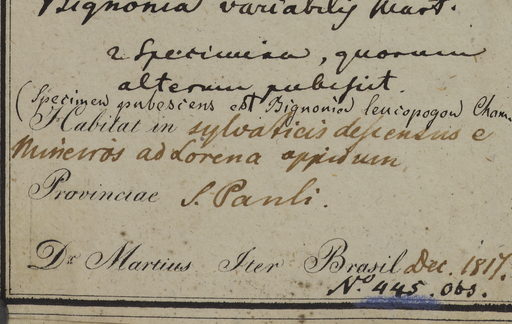 Bignonia variabilis Mart.
2 Specimina, quorum
alterum pubescit.
(Specimen pubescens est Bignonia leucopogon Cham.
Habitat in sylvaticis descensus e
Mineiros ad Lorena oppidum
Provinciae S. Pauli.
Dr. Martius Iter Brasil Dec. 1817.
No. 445. Obs.